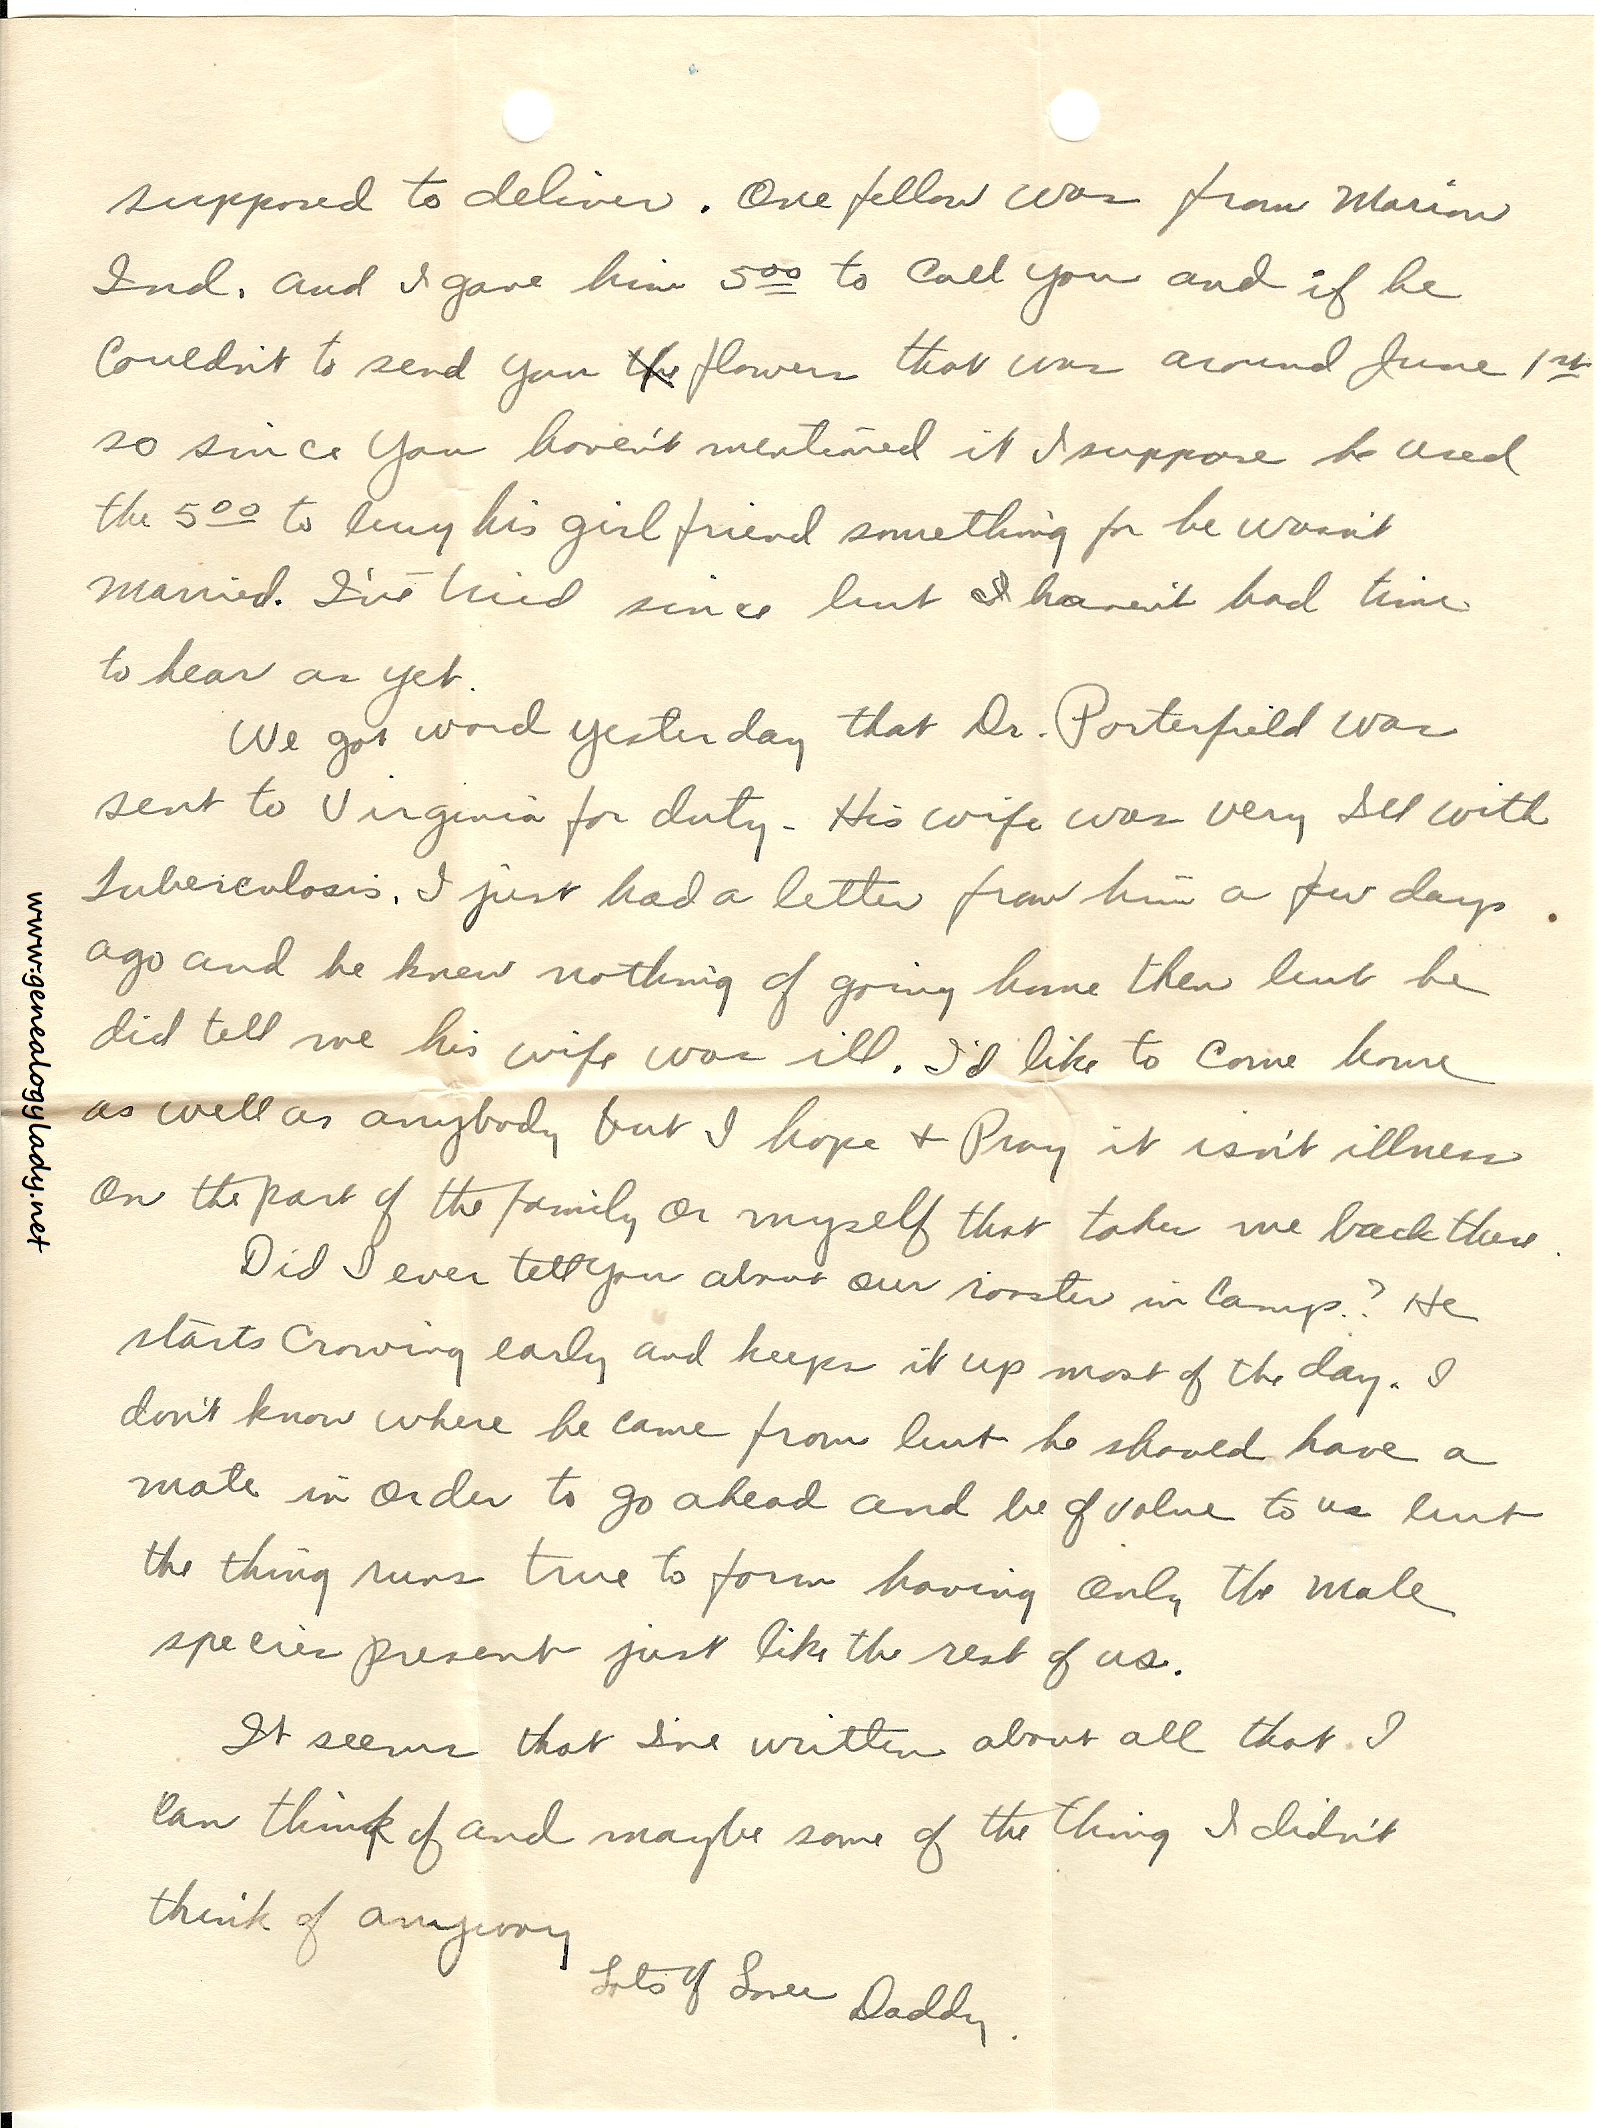 supposed to deliver. One fellow was from Marion
Ind. and I gave him 5.00 to call you and if he
Couldn't to send you the flowers that was around June 1st
so since you haven't mentioned it I suppose he used
the 5.00 to buy his girl friend something for he wasn't
married. I've tried since but I haven't had time
to hear as yet.
We got word yesterday that Dr. Porterfield was
sent to Virginia for duty - His wife was very Ill with
tuberculosis. I just had a letter from him a few days
ago and he knew nothing of going home then but he
did tell me his wife was ill. I'd like to come home
as well as anybody but I hope + Pray it isn't illness
on the part of the family or myself that takes me back there.
Did I ever tell you about our rooster in Camp? He
starts Crowing early and keeps it up most of the day. I
don't know where he came from but he should have a
mate in order to go ahead and be of value to us but
the thing runs true to form having only the male
species present just like the rest of us.
It seems that I've written about all that I
can think of and maybe some of the thing I didn't
think of anyway
Lots of Love Daddy.
www.genealogylady.net